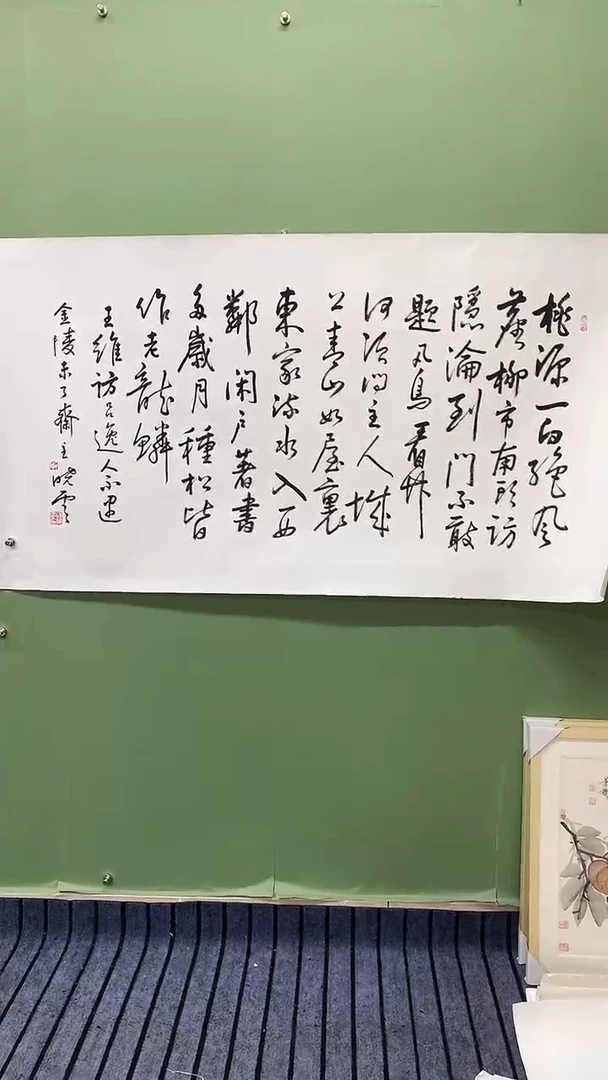 桃源一向絕風
塵柳市南頭訪
隱淪到門不敢
題凡鳥看竹
何須問主人城
上青山如屋裏
東家流水入西
鄰閑戶著書
多歲月種松皆
作老龍鱗
王維訪呂逸人不遇
金陵未了齋主曉雲